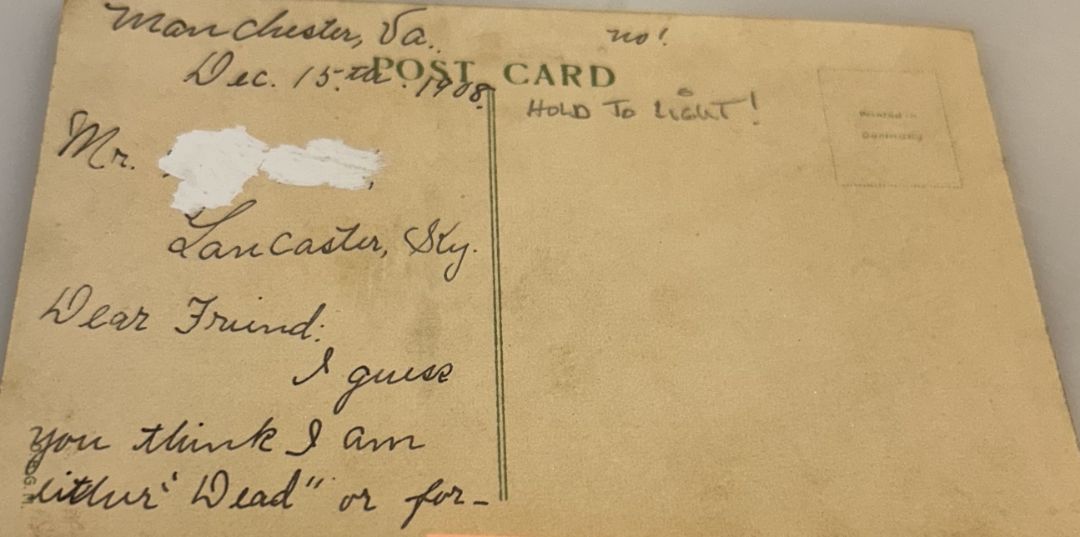 Manchester, Va.
Dec. 15.th. 1908.
no!
POST CARD
HOLD TO LIGHT!
Printed in
Germany
Mr.
Lancaster, Ky.
Dear Friend:
I guess
you think I am
either "Dead" or for-
G.M.